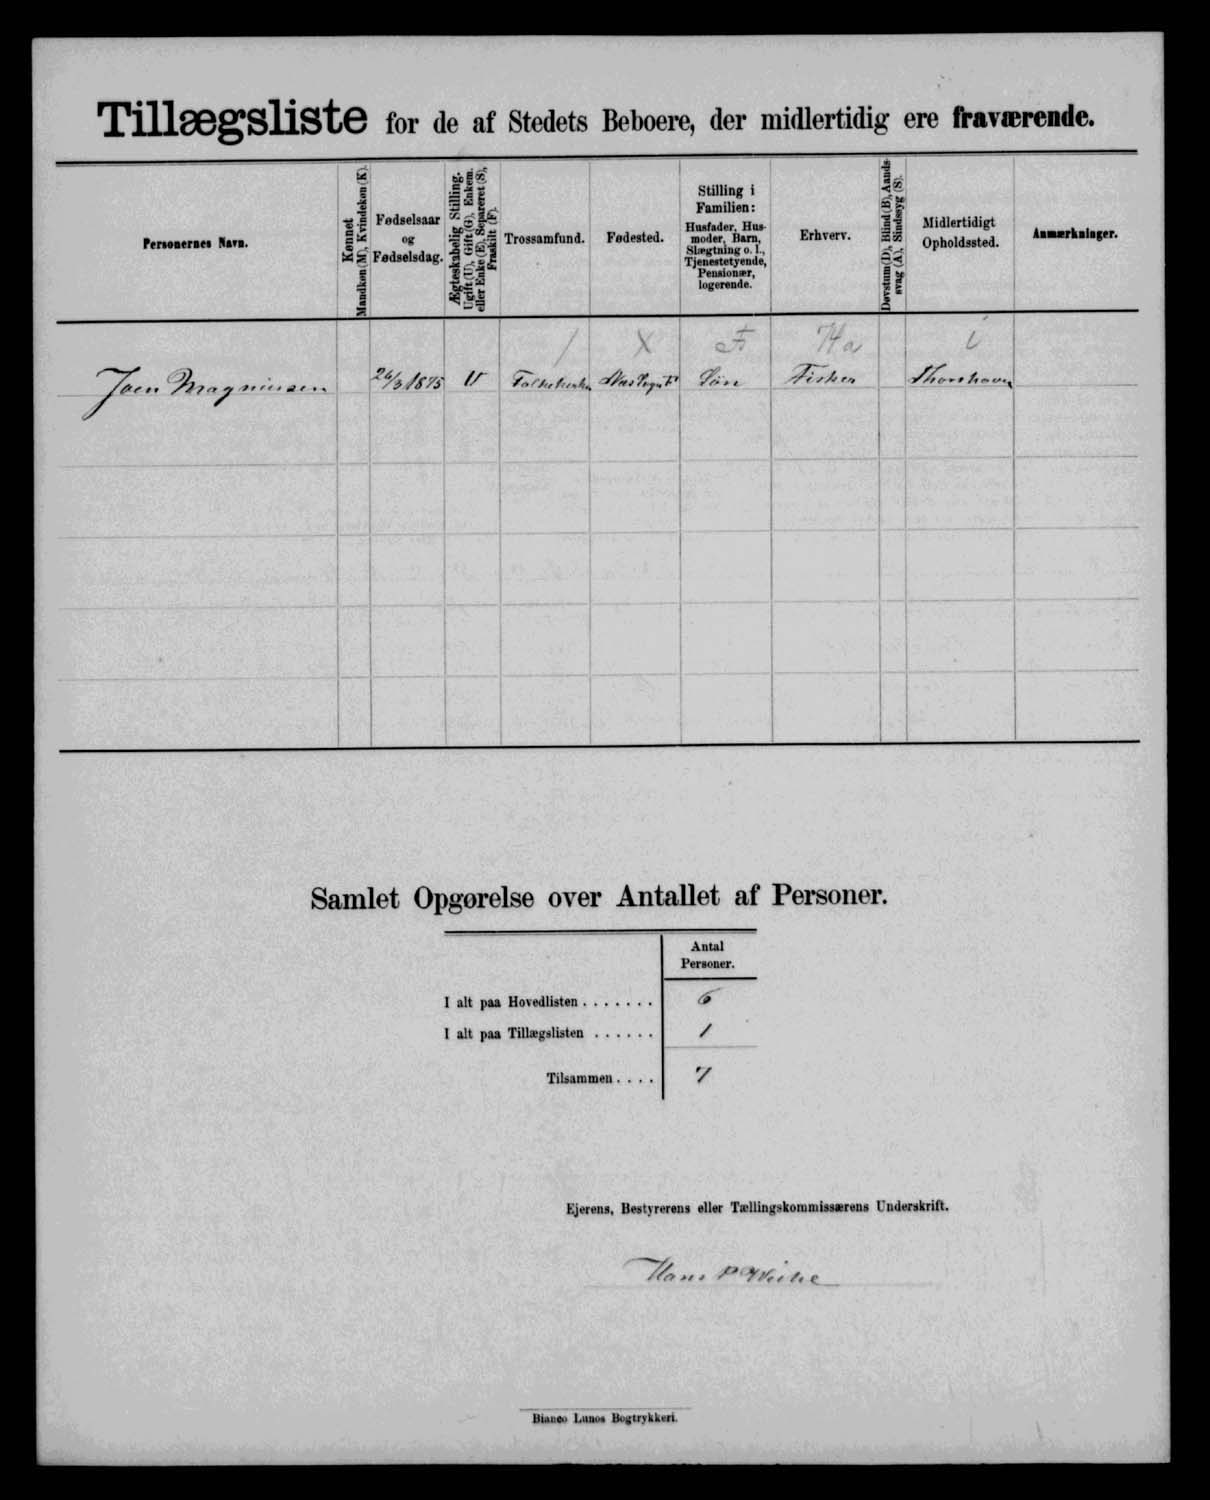 Tillægsliste for de af Stedets Beboere, der midlertidig ere fraværende.
Personernes Navn.
Kønnet
Mandkøn (M), Kvindekøn (K).
Fødselsaar
og
Fødselsdag.
Ægteskabelig Stilling.
Ugift (U), Gift (G), Enkem.
eller Enke (E), Separeret (S),
Fraskilt (F).
Trossamfund.
Fødested.
Stilling i
Familien:
Husfader, Hus-
moder, Barn,
Slægtning o. l.,
Tjenestetyende,
Pensionær,
logerende.
Erhverv.
Døvstum (D), Blind (B), Aands-
svag (A), Sindssyg (S).
Midlertidigt
Opholdssted.
Anmærkninger.
/ X F Ha i
Joen Magnussen 26/3 1875 U Folkekirken Søn Fisker Thorshavn
Samlet Opgørelse over Antallet af Personer.
Antal
Personer.
I alt paa Hovedlisten . . . . . . . 6
I alt paa Tillægslisten . . . . . . 1
Tilsammen . . . . 7
Ejerens, Bestyrerens eller Tællingskommissærens Underskrift.
Hans P
Bianco Lunos Bogtrykkeri.